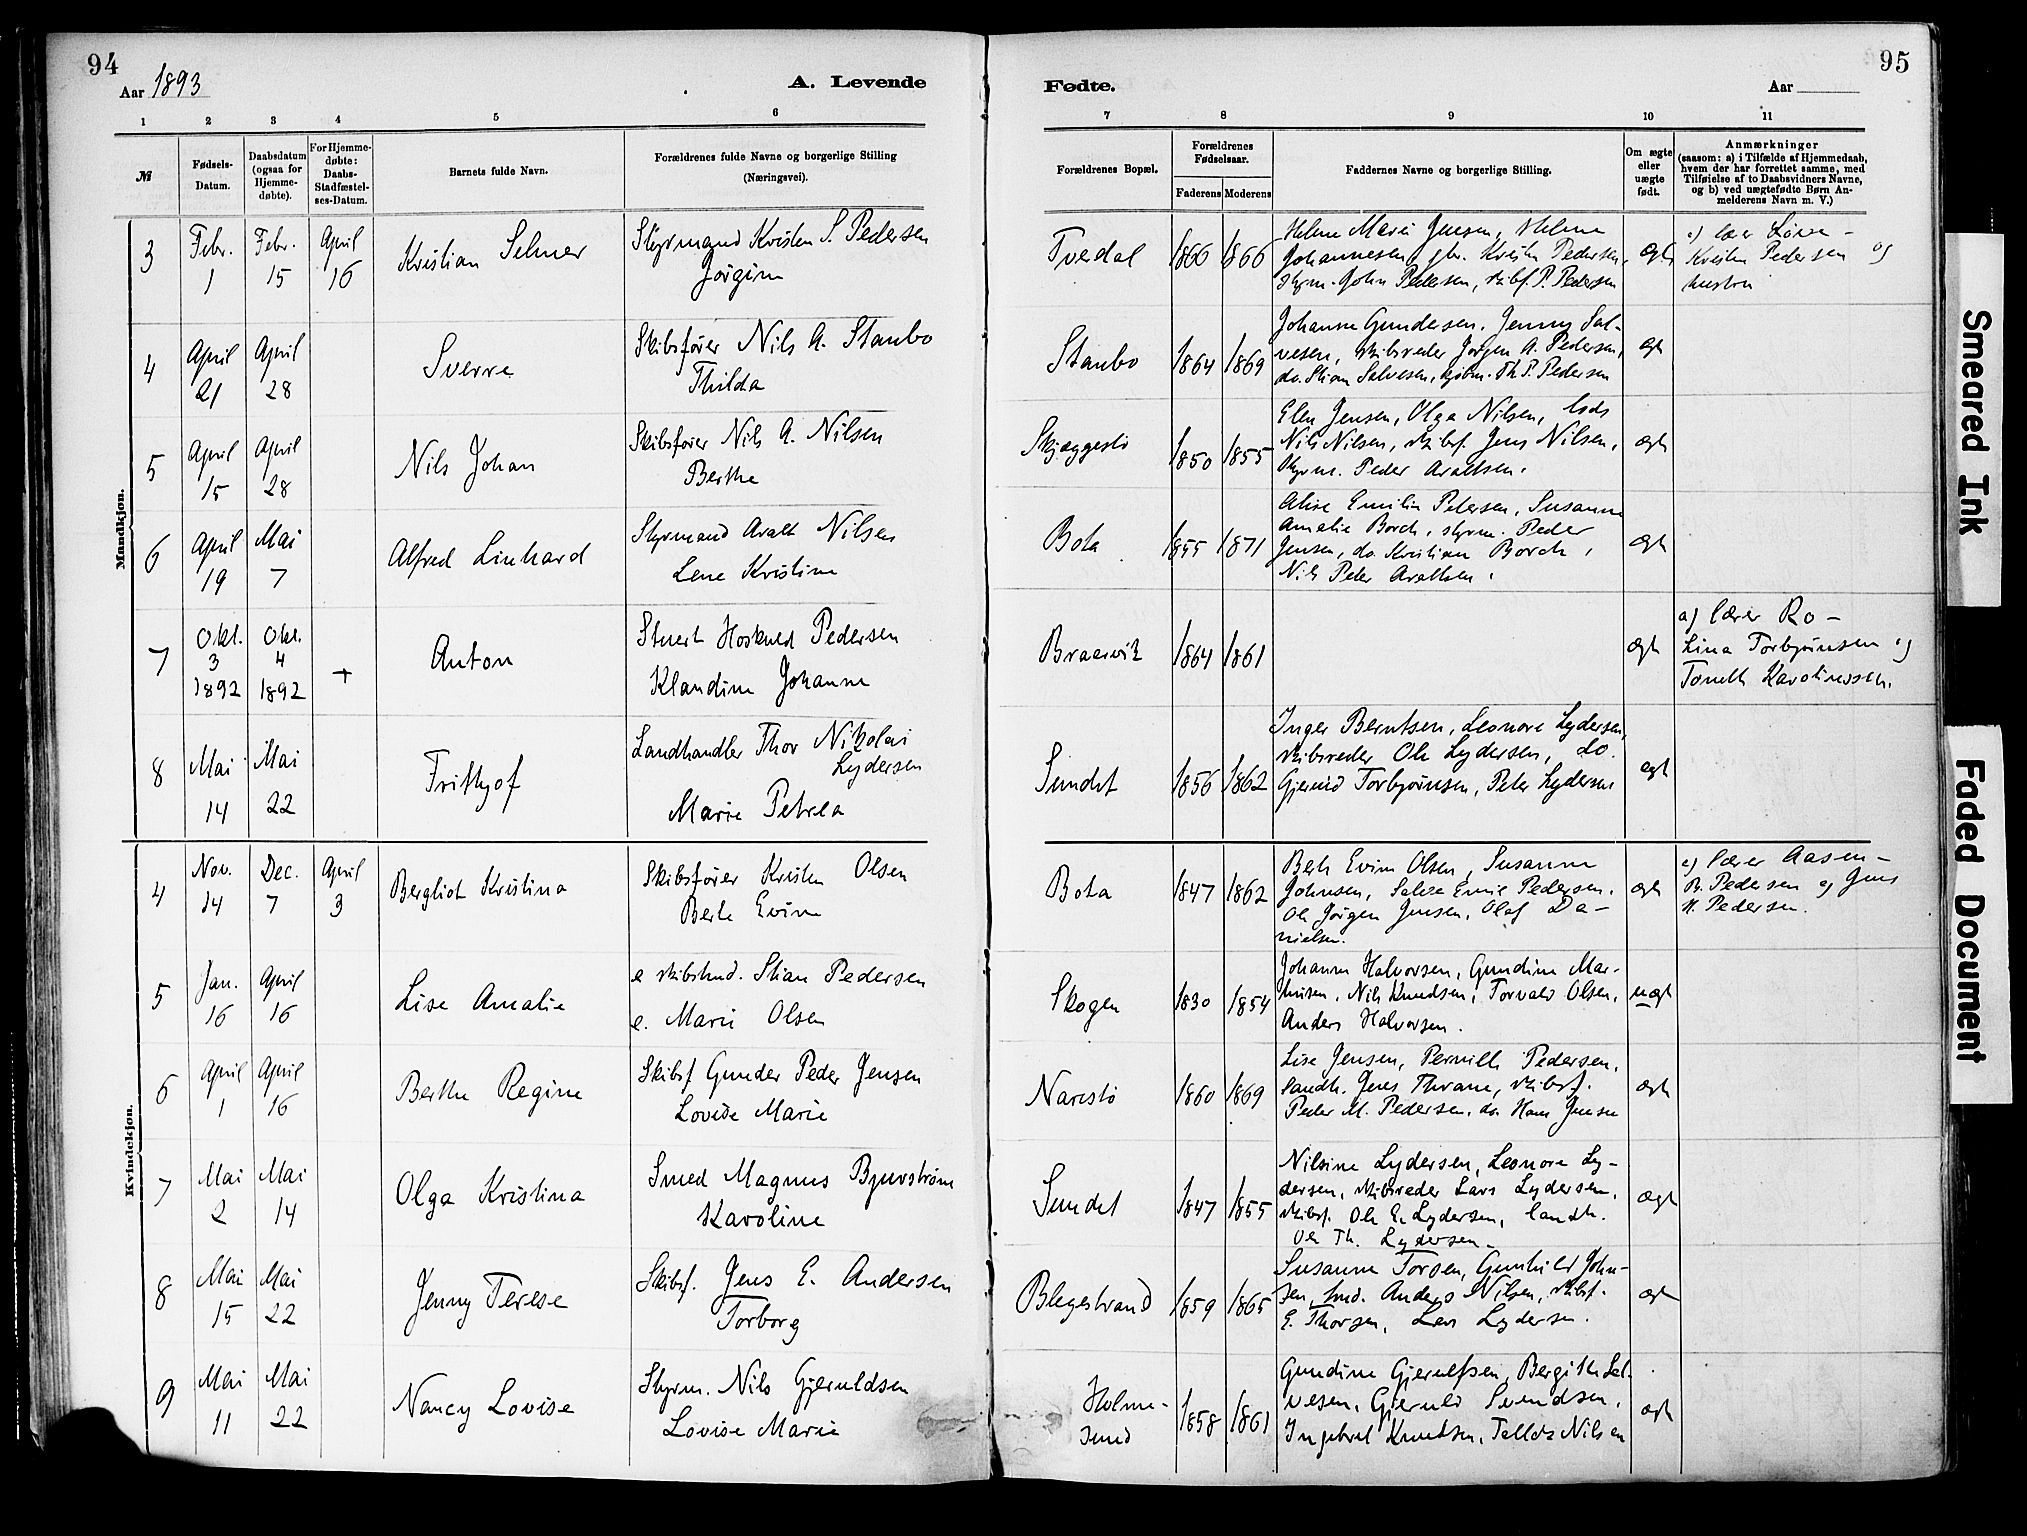 94
Aar 1893
A. Levende
1 2 3 4 5 6
№
Fødsels-
Datum.
Daabsdatum
(ogsaa for
Hjemme-
døbte).
For Hjemme-
døbte:
Daabs-
Stadfæstel-
ses-Datum.
Barnets fulde Navn.
Forældrenes fulde Navne og borgerlige Stilling
(Næringsvei).
Mandkjøn.
3 Febr. 1 Febr. 15 April 16 Kristian Selmer
Styrmand Kristen S. Pedersen
Jørgine
4 April 21 April 28 Sverre
Skibsfører Nils A. Staubo
Thilda
5 April 15 April 28 Nils Johan
Skibsfører Nils A. Nilsen
Berthe
6 April 19 Mai 7 Alfred Linhard
Styrmand Aralt Nilsen
Lene Kristine
7 Okt. 3 1892 Okt. 4 1892 + Anton
Stuert Hoskuld Pedersen
Klandine Johanne
8 Mai 14 Mai 22 Frithjof
Landhandler Thor Nikolai
Lydersen
Marie Petrea
Kvindekjøn.
4 Nov. 14 Dec. 7 April 3 Bergliot Kristina
Skibsfører Kristen Olsen
Berte Evine
5 Jan. 16 April 16 Lise Amalie
e skibstmd. Stian Pedersen
e. Marie Olsen
6 April 1 April 16 Berthe Regine
Skibsf Gunder Peder Jensen
Lovise Marie
7 Mai 2 Mai 14 Olga Kristina
Smed Magnus Bjurstrøm
Karoline
8 Mai 15 Mai 22 Jenny Terese
Skibsf. Jens E. Andersen
Torborg
9 Mai 11 Mai 22 Nancy Lovise
Styrm. Nils Gjeruldsen
Lovise Marie
95
Fødte.
Aar
7 8 9 10 11
Forældrenes Bopæl.
Forældrenes
Fødselsaar.
Faderens Moderens
Faddernes Navne og borgerlige Stilling.
Om ægte
eller
uægte
født.
Anmærkninger
(saasom: a) i Tilfælde af Hjemmedaab,
hvem der har forrettet samme, med
Tilføielse af to Daabsvidners Navne,
og b) ved uægtefødte Børn An-
melderens Navn m. V.)
Tvedal 1866 1866
Helene Marie Jensen, Helene
Johannesen, gbr. Kristen Pedersen,
styrm. John Pedersen, skibf. P. Pedersen
ægt
Kristen Pedersen og
hustru
Staubo 1864 1869
Johanne Gundersen, Jenny Sal-
vesen, skibsreder Jørgen A. Pedersen,
do. Stian Salvesen, kjøbm. Th. P. Pedersen
ægt
Skjæggestø 1850 1855
Elen Jensen, Olga Nilsen, lods
Nils Nilsen, skibsf. Jens Nilsen,
styrm. Peder Araltsen.
ægt
Bota 1855 1871
Alise Emilie Petersen, Susanne
Amalie Borch, styrm. Peder
Jensen, do. Kristian Borch,
Nils Peter Araltsen.
ægt
Braarvik 1864 1861
ægt
a) lærer Ro-
Lina Torbjørnsen og
Tomette Karolinessen.
Sundet 1856 1862
Inger Berntsen, Leonore Lydersen,
skibsreder Ole Lydersen, do.
Gjeruld Torbjørnsen, Peter Lydersen
ægt
Bota 1847 1862
Berte Evine Olsen, Susanne
Johnsen, Salve Emil Pedersen,
Ole Jørgen Jensen, Olaf Da-
nielsen.
ægt
a) lærer Aasen-
B. Pedersen og Jens
N. Pedersen.
Skogen 1830 1854
Johanne Halvorsen, Gundine Mar-
tinsen, Nils Knudsen, Torvald Olsen,
Anders Halvorsen.
uægt
Narestø 1860 1869
Lise Jensen, Pernille Pedersen,
landh. Jens Thrane, skibsf.
Peder M. Pedersen, do. Hans Jensen
ægt
Sundet 1847 1855
Nilsine Lydersen, Leonore Ly-
dersen, skibsreder Lars Lydersen,
skibsf. Ole E. Lydersen, landh.
Ole Th. Lydersen.
ægt
Blegestrand 1859 1865
Susanne Torsen, Gunhild John-
sen, tmd. Anders Nilsen, skibsf.
E. Thorsen, Lars Lydersen.
ægt
Holme-
sund 1858 1861
Gundine Gjerulfsen, Bergithe Sal-
vesen, Gjeruld Svendsen,
Ingebret Knudsen, Tellef Nilsen
ægt
Smeared Ink
Faded Document